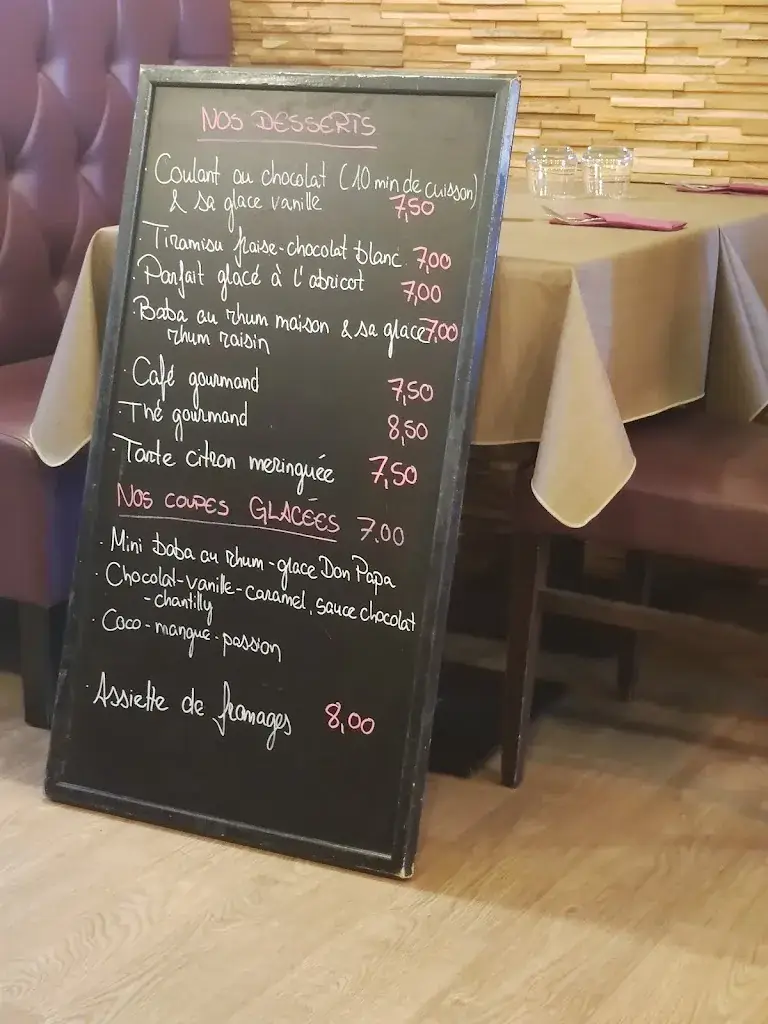 NOS DESSERTS
· Coulant au chocolat (10 min de cuisson)
& sa glace vanille 7,50
· Tiramisu fraise-chocolat blanc 7,00
· Parfait glacé à l'abricot 7,00
· Baba au rhum maison & sa glace 7,00
rhum raisin
· Café gourmand 7,50
· Thé gourmand 8,50
· Tarte citron meringuée 7,50
NOS COUPES GLACÉES 7.00
· Mini baba au rhum - glace Don Papa
· Chocolat-vanille-caramel, sauce chocolat
- chantilly
· Coco - mangue - passion
· Assiette de fromages 8,00